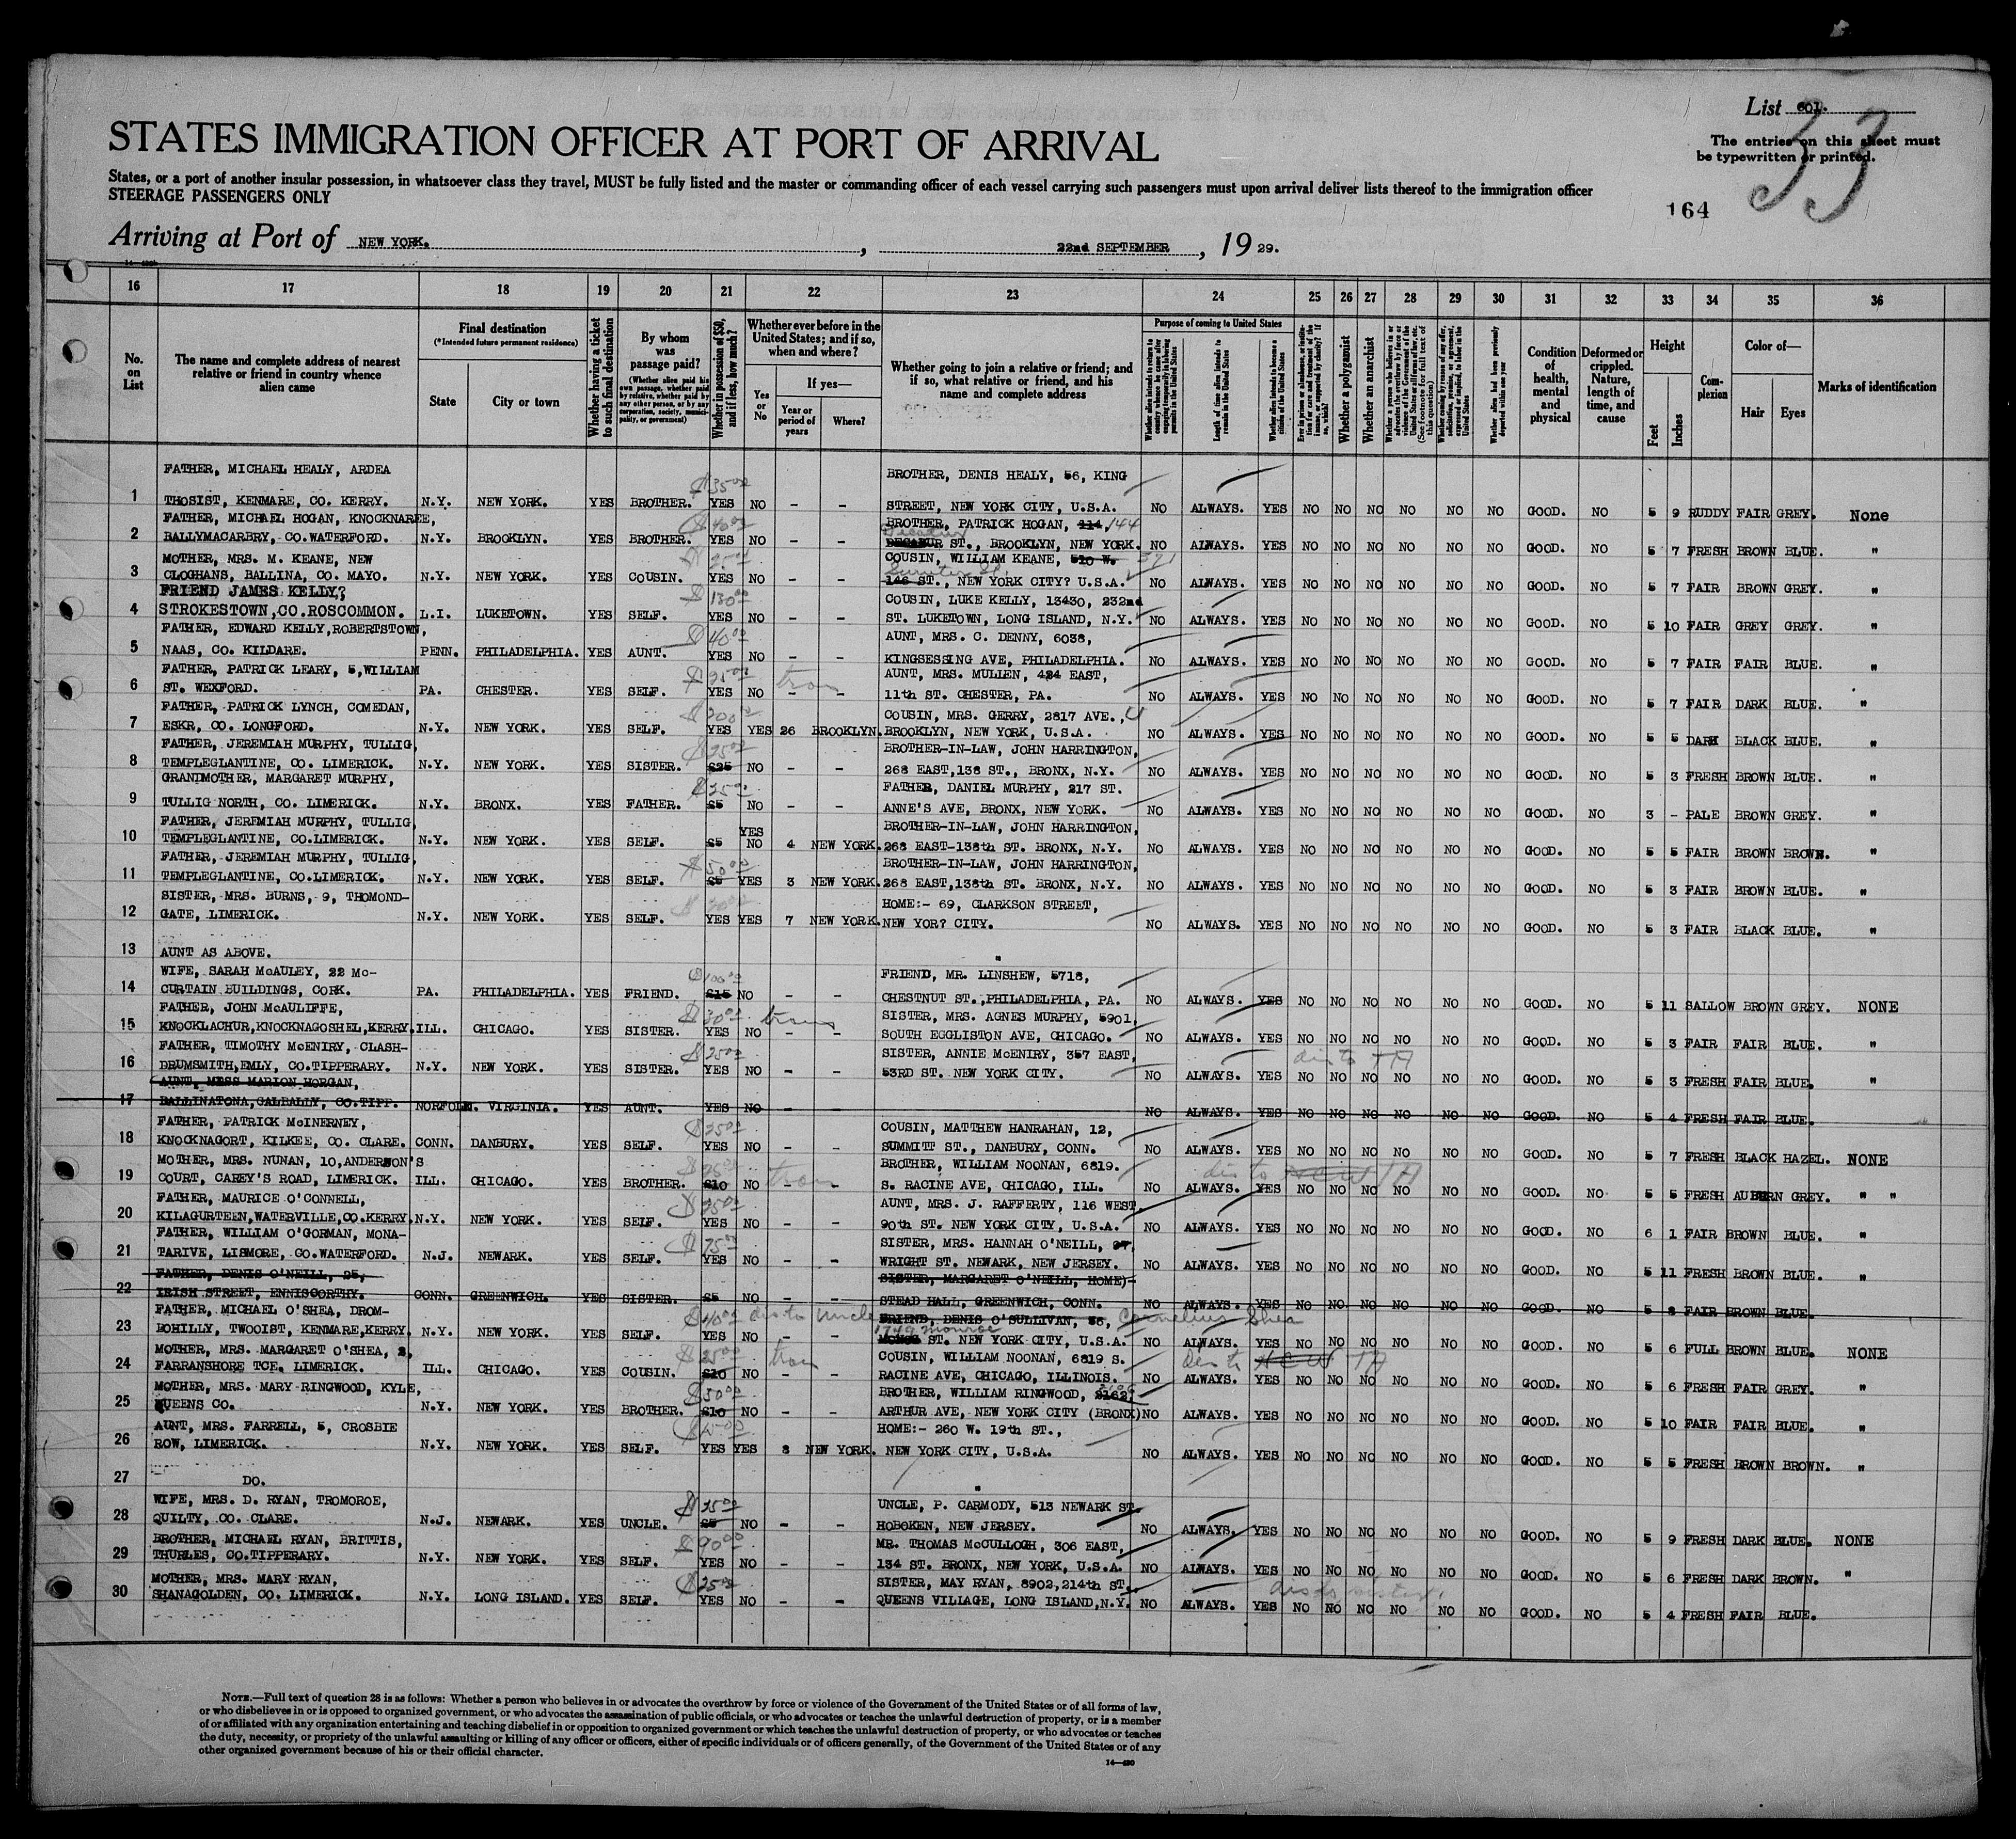 List 601.
33
The entries on this sheet must
be typewritten or printed.
164
STATES IMMIGRATION OFFICER AT PORT OF ARRIVAL
States, or a port of another insular possession, in whatsoever class they travel, MUST be fully listed and the master or commanding officer of each vessel carrying such passengers must upon arrival deliver lists thereof to the immigration officer
STEERAGE PASSENGERS ONLY
Arriving at Port of NEW YORK. , 22nd SEPTEMBER , 19 29.
16 17 18 19 20 21 22 23 24 25 26 27 28 29 30 31 32 33 34 35 36
No. on List
The name and complete address of nearest relative or friend in country whence alien came
Final destination (*Intended future permanent residence)
State
City or town
Whether having a ticket to such final destination
By whom was passage paid?
(Whether alien paid his own passage, whether paid by relative, whether paid by any other person, or by any corporation, society, municipality, or government)
Whether in possession of $50, and if less, how much?
Whether ever before in the United States; and if so, when and where?
Yes or No
If yes—
Year or period of years
Where?
Whether going to join a relative or friend; and if so, what relative or friend, and his name and complete address
Purpose of coming to United States
Length of time alien intends to remain in the United States
Whether alien intends to become a citizen of the United States
Whether a polygamist
Whether an anarchist
Condition of health, mental and physical
Deformed or crippled. Nature, length of time, and cause
Height
Feet
Inches
Complexion
Color of—
Hair
Eyes
Marks of identification
FATHER, MICHAEL HEALY, ARDEA BROTHER, DENIS HEALY, 56, KING
$3500
1 THOSIST, KENMARE, CO. KERRY. N.Y. NEW YORK. YES BROTHER. YES NO – – STREET, NEW YORK CITY, U.S.A. NO ALWAYS. YES NO NO NO NO NO NO GOOD. NO 5 9 RUDDY FAIR GREY. None
FATHER, MICHAEL HOGAN, KNOCKNAREE, $40 00 BROTHER, PATRICK HOGAN, 114, 144
Decatur
2 BALLYMACARBRY, CO.WATERFORD. N.Y. BROOKLYN. YES BROTHER. YES NO – – DECATUR ST., BROOKLYN, NEW YORK. NO ALWAYS. YES NO NO NO NO NO NO GOOD. NO 5 7 FRESH BROWN BLUE. "
MOTHER, MRS. M. KEANE, NEW COUSIN, WILLIAM KEANE, 510 W.
3 CLOGHANS, BALLINA, CO. MAYO. N.Y. NEW YORK. YES COUSIN. YES NO – – 146 ST., NEW YORK CITY? U.S.A. NO ALWAYS. YES NO NO NO NO NO NO GOOD. NO 5 7 FAIR BROWN GREY. "
FRIEND JAMES KELLY? $130 00 COUSIN, LUKE KELLY, 13430, 232nd
4 STROKESTOWN, CO.ROSCOMMON. L.I. LUKETOWN. YES SELF. YES NO – – ST. LUKETOWN, LONG ISLAND, N.Y. NO ALWAYS. YES NO NO NO NO NO NO GOOD. NO 5 10 FAIR GREY GREY. "
FATHER, EDWARD KELLY,ROBERTSTOWN, $40 00 AUNT, MRS. C. DENNY, 6038,
5 NAAS, CO. KILDARE. PENN. PHILADELPHIA. YES AUNT. YES NO – – KINGSESSING AVE, PHILADELPHIA. NO ALWAYS. YES NO NO NO NO NO NO GOOD. NO 5 7 FAIR FAIR BLUE. "
FATHER, PATRICK LEARY, 5,WILLIAM $25 00 tran AUNT, MRS. MULLEN, 424 EAST,
6 ST. WEXFORD. PA. CHESTER. YES SELF. YES NO – – 11th ST. CHESTER, PA. NO ALWAYS. YES NO NO NO NO NO NO GOOD. NO 5 7 FAIR DARK BLUE. "
FATHER, PATRICK LYNCH, COMEDAN, $200 COUSIN, MRS. GERRY, 2817 AVE., U
7 ESKR, CO. LONGFORD. N.Y. NEW YORK. YES SELF. YES YES 26 BROOKLYN. BROOKLYN, NEW YORK, U.S.A. NO ALWAYS. YES NO NO NO NO NO NO GOOD. NO 5 5 DARK BLACK BLUE. "
FATHER, JEREMIAH MURPHY, TULLIG, $25 00 BROTHER-IN-LAW, JOHN HARRINGTON,
8 TEMPLEGLANTINE, CO. LIMERICK. N.Y. NEW YORK. YES SISTER. $25 NO – – 268 EAST,138 ST., BRONX, N.Y. NO ALWAYS. YES NO NO NO NO NO NO GOOD. NO 5 3 FRESH BROWN BLUE. "
GRANDMOTHER, MARGARET MURPHY, $25 00 FATHER, DANIEL MURPHY, 217 ST.
9 TULLIG NORTH, CO. LIMERICK. N.Y. BRONX. YES FATHER. $5 NO – – ANNE'S AVE, BRONX, NEW YORK. NO ALWAYS. YES NO NO NO NO NO NO GOOD. NO 3 – PALE BROWN GREY. "
FATHER, JEREMIAH MURPHY, TULLIG, YES BROTHER-IN-LAW, JOHN HARRINGTON,
10 TEMPLEGLANTINE, CO.LIMERICK. N.Y. NEW YORK. YES SELF. $5 NO 4 NEW YORK. 268 EAST-138th ST. BRONX, N.Y. NO ALWAYS. YES NO NO NO NO NO NO GOOD. NO 5 5 FAIR BROWN BROWN. "
FATHER, JEREMIAH MURPHY, TULLIG, $50 00 BROTHER-IN-LAW, JOHN HARRINGTON,
11 TEMPLEGLANTINE, CO.LIMERICK. N.Y. NEW YORK. YES SELF. $5 YES 3 NEW YORK. 268 EAST,138th ST. BRONX, N.Y. NO ALWAYS. YES NO NO NO NO NO NO GOOD. NO 5 3 FAIR BROWN BLUE. "
SISTER, MRS. BURNS, 9, THOMOND- HOME:- 69, CLARKSON STREET,
12 GATE, LIMERICK. N.Y. NEW YORK. YES SELF. YES YES 7 NEW YORK. NEW YOR? CITY. NO ALWAYS. YES NO NO NO NO NO NO GOOD. NO 5 3 FAIR BLACK BLUE. "
13 AUNT AS ABOVE. "
WIFE, SARAH McAULEY, 22 Mc- $100 00 FRIEND, MR. LINSHEW, 5718,
14 CURTAIN BUILDINGS, CORK. PA. PHILADELPHIA. YES FRIEND. $15 NO – – CHESTNUT ST.,PHILADELPHIA, PA. NO ALWAYS. YES NO NO NO NO NO NO GOOD. NO 5 11 SALLOW BROWN GREY. NONE
FATHER, JOHN McAULIFFE, $30 00 trans SISTER, MRS. AGNES MURPHY, 5901,
15 KNOCKLACHUR,KNOCKNAGOSHEL,KERRY. ILL. CHICAGO. YES SISTER. YES NO – – SOUTH EGGLISTON AVE, CHICAGO. NO ALWAYS. YES NO NO NO NO NO NO GOOD. NO 5 3 FAIR FAIR BLUE. "
FATHER, TIMOTHY McENIRY, CLASH- $25 00 SISTER, ANNIE McENIRY, 357 EAST, dis to TA
16 DRUMSMITH,EMLY, CO.TIPPERARY. N.Y. NEW YORK. YES SISTER. YES NO – – 53RD ST. NEW YORK CITY. NO ALWAYS. YES NO NO NO NO NO NO GOOD. NO 5 3 FRESH FAIR BLUE. "
AUNT, MESS MARION HORGAN,
17 BALLINATONA,GALBALLY, CO.TIPP. NORFOLK. VIRGINIA. YES AUNT. YES NO – – NO ALWAYS. YES NO NO NO NO NO NO GOOD. NO 5 4 FRESH FAIR BLUE.
FATHER, PATRICK McINERNEY, $25 00 COUSIN, MATTHEW HANRAHAN, 12,
18 KNOCKNAGORT, KILKEE, CO. CLARE. CONN. DANBURY. YES SELF. YES NO – – SUMMITT ST., DANBURY, CONN. NO ALWAYS. YES NO NO NO NO NO NO GOOD. NO 5 7 FRESH BLACK HAZEL. NONE
MOTHER, MRS. NUNAN, 10,ANDERSON'S tran BROTHER, WILLIAM NOONAN, 6819. dis to NEW TA
19 COURT, CAREY'S ROAD, LIMERICK. ILL. CHICAGO. YES BROTHER. $10 NO – – S. RACINE AVE, CHICAGO, ILL. NO ALWAYS. YES NO NO NO NO NO NO GOOD. NO 5 5 FRESH AUBURN GREY. " "
FATHER, MAURICE O'CONNELL, $25 00 AUNT, MRS. J. RAFFERTY, 116 WEST,
20 KILAGURTEEN,WATERVILLE,CO.KERRY. N.Y. NEW YORK. YES SELF. YES NO – – 90th ST. NEW YORK CITY, U.S.A. NO ALWAYS. YES NO NO NO NO NO NO GOOD. NO 6 1 FAIR BROWN BLUE. "
FATHER, WILLIAM O'GORMAN, MONA- $75 00 SISTER, MRS. HANNAH O'NEILL, 27,
21 TARIVE, LISMORE, CO.WATERFORD. N.J. NEWARK. YES SELF. YES NO – – WRIGHT ST. NEWARK, NEW JERSEY. NO ALWAYS. YES NO NO NO NO NO NO GOOD. NO 5 11 FRESH BROWN BLUE. "
FATHER, DENIS O'NEILL, 25, SISTER, MARGARET O'NEILL, HOME)-
22 IRISH STREET, ENNISCORTHY. CONN. GREENWICH. YES SISTER. $5 NO – – STEAD HALL, GREENWICH, CONN. NO ALWAYS. YES NO NO NO NO NO NO GOOD. NO 5 8 FAIR BROWN BLUE.
FATHER, MICHAEL O'SHEA, DROM- $40 00 dis to Uncle FRIEND, DENIS O'SULLIVAN, 56, Cornelius Shea
1749 Monroe
23 BOHILLY, TWOOIST, KENMARE,KERRY. N.Y. NEW YORK. YES SELF. YES NO – – ST. NEW YORK CITY, U.S.A. NO ALWAYS. YES NO NO NO NO NO NO GOOD. NO 5 6 FULL BROWN BLUE. NONE
MOTHER, MRS. MARGARET O'SHEA, 2, $25 00 tran COUSIN, WILLIAM NOONAN, 6819 S. dis to NEW TA
24 FARRANSHORE TCE. LIMERICK. ILL. CHICAGO. YES COUSIN. $10 NO – – RACINE AVE, CHICAGO, ILLINOIS. NO ALWAYS. YES NO NO NO NO NO NO GOOD. NO 5 6 FRESH FAIR GREY. "
MOTHER, MRS. MARY RINGWOOD, KYLE, $30 00 BROTHER, WILLIAM RINGWOOD, 2162,
25 QUEENS CO. N.Y. NEW YORK. YES BROTHER. $10 NO – – ARTHUR AVE, NEW YORK CITY (BRONX) NO ALWAYS. YES NO NO NO NO NO NO GOOD. NO 5 10 FAIR FAIR BLUE. "
AUNT, MRS. FARRELL, 5, CROSBIE HOME:- 260 W. 19th ST.,
26 ROW, LIMERICK. N.Y. NEW YORK. YES SELF. YES YES 8 NEW YORK. NEW YORK CITY, U.S.A. NO ALWAYS. YES NO NO NO NO NO NO GOOD. NO 5 5 FRESH BROWN BROWN. "
27 DO. "
WIFE, MRS. D. RYAN, TROMOROE, $25 00 UNCLE, P. CARMODY, 513 NEWARK ST.
28 QUILTY, CO. CLARE. N.J. NEWARK. YES UNCLE. $5 NO – – HOBOKEN, NEW JERSEY. NO ALWAYS. YES NO NO NO NO NO NO GOOD. NO 5 9 FRESH DARK BLUE. NONE
BROTHER, MICHAEL RYAN, BRITTIS, $90 00 MR. THOMAS McCULLOGH, 306 EAST,
29 THURLES, CO.TIPPERARY. N.Y. NEW YORK. YES SELF. YES NO – – 134 ST. BRONX, NEW YORK, U.S.A. NO ALWAYS. YES NO NO NO NO NO NO GOOD. NO 5 6 FRESH DARK BROWN. "
MOTHER, MRS. MARY RYAN, $25 00 SISTER, MAY RYAN, 8902,214th ST., dis to sister
30 SHANAGOLDEN, CO. LIMERICK. N.Y. LONG ISLAND. YES SELF. YES NO – – QUEENS VILLAGE, LONG ISLAND,N.Y. NO ALWAYS. YES NO NO NO NO NO NO GOOD. NO 5 4 FRESH FAIR BLUE.
NOTE.—Full text of question 28 is as follows: Whether a person who believes in or advocates the overthrow by force or violence of the Government of the United States or of all forms of law,
or who disbelieves in or is opposed to organized government, or who advocates the assassination of public officials, or who advocates or teaches the unlawful destruction of property, or is a member
of or affiliated with any organization entertaining and teaching disbelief in or opposition to organized government or which teaches the unlawful destruction of property, or who advocates or teaches
the duty, necessity, or propriety of the unlawful assaulting or killing of any officer or officers, either of specific individuals or of officers generally, of the Government of the United States or of any
other organized government because of his or their official character.
14—430